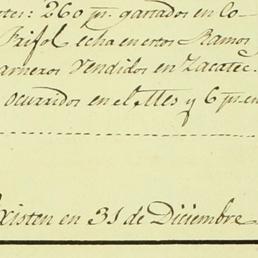 tes: 260 pr. gastados en Co-
Frifol echa en estos Ramos
arneros Vendidos en Zacatec.
ocurridos en el Mes y 6 pr. en
Existen en 31 de Diciembre